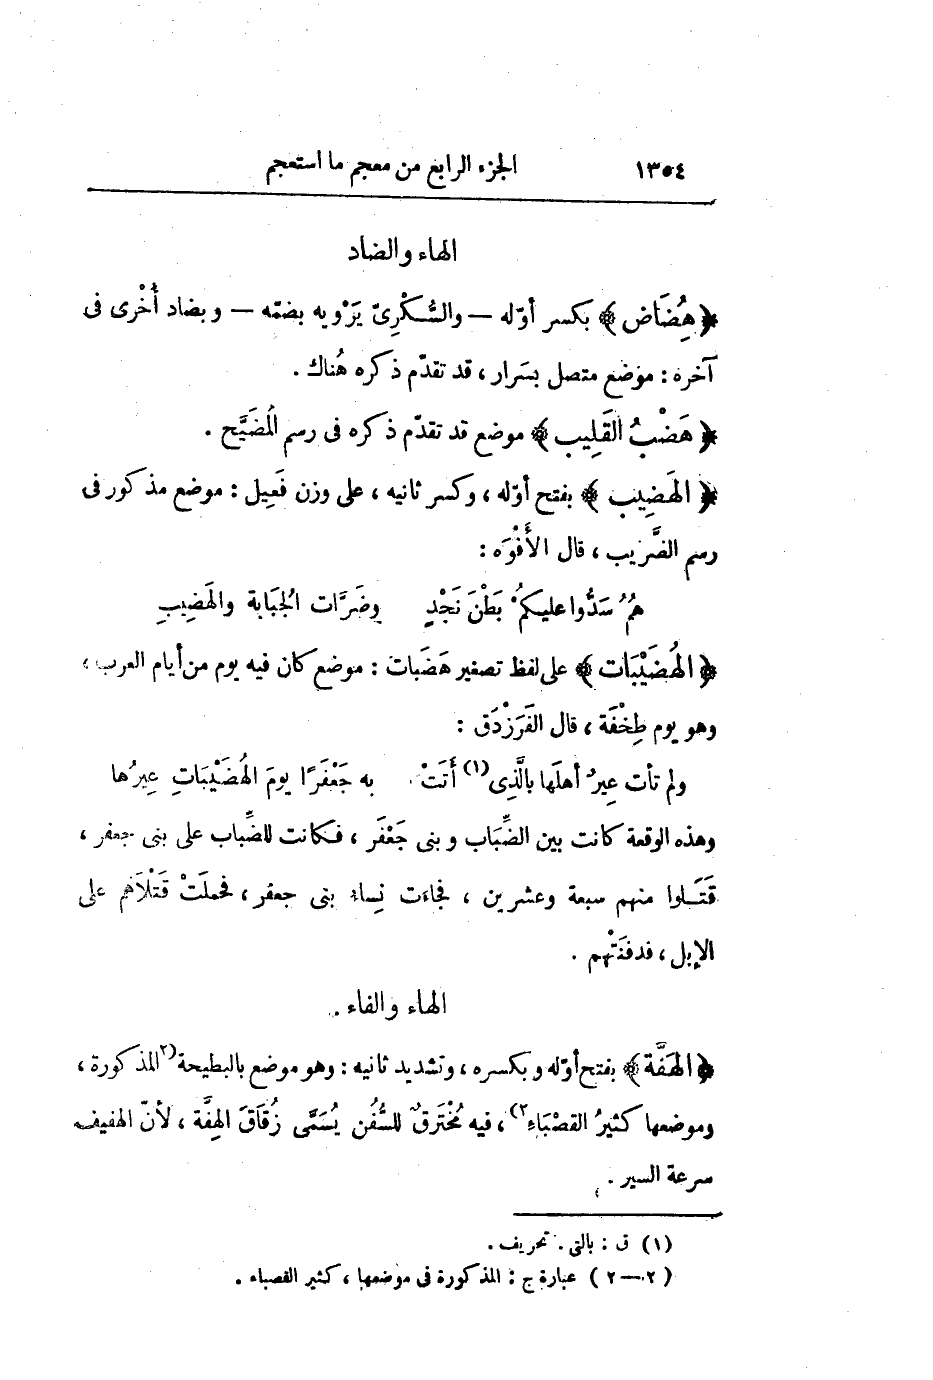 ١٣٥٤ الجزء الرابع من معجم ما استعجم
الهاء والضاد
﴿هِضَاض﴾ بكسر أوّله — والسُّكْرِىّ يَرْويه بضمّه — وبضاد أُخْرى فى
آخره : موضع متصل بسَرار ، قد تقدّم ذكره هُناك .
﴿هَضْبُ القَلِيب﴾ موضع قد تقدّم ذكره فى رسم المُضَيَّح .
﴿الهَضِيب﴾ بفتح أوّله ، وكسر ثانيه ، على وزن فَعِيل : موضع مذكور فى
رسم الضَّرِيب ، قال الأَفْوَه :
همُ سَدُّوا عليكمُ بَطْنَ نَجْدٍ وضَرَّات الجُبَابة والهَضِيبِ
﴿الهُضَيْبَات﴾ على لفظ تصغير هَضَبات : موضع كان فيه يوم من أيام العرب ،
وهو يوم طِخْفَة ، قال الفَرَزْدَق :
ولم تأت عِيرٌ أهلَها بالَّذِى(١) أَتَتْ به جَعْفَرًا يومَ الهُضَيْبَاتِ عِيرُها
وهذه الوقعة كانت بين الضِّبَاب وبنى جَعْفَر ، فكانت للضِّباب على بنى جعفر ،
قَتَلوا منهم سبعة وعشرين ، فجاءت نِساء بنى جعفر ، فحملَتْ قَتْلَاهم على
الإبل ، فدفنَتْهم .
الهاء والفاء .
﴿الهَفَّة﴾ بفتح أوّله وبكسره ، وتشديد ثانيه : وهو موضع بالبطيحة (٢المذكورة ،
وموضعها كثيرُ القصْبَاءِ٢) ، فيه مُخْتَرَقٌ للسُّفُن يُسَمَّى زُقَاقَ الهِفَّة ، لأنّ الهفيف
سرعة السير .
(١) ق : بالتى . تحريف .
(٢—٢) عبارة ج : المذكورة فى موضعها ، كثير القصباء .